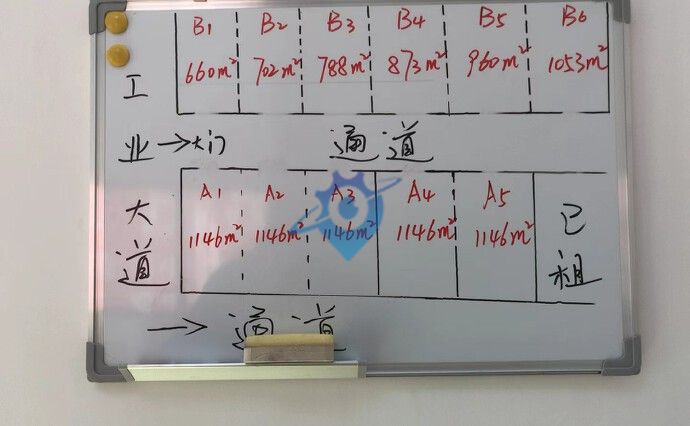 B1 B2 B3 B4 B5 B6
660m² 702m² 788m² 873m² 960m² 1053m²
工业大道
→大门
通道
A1 A2 A3 A4 A5
1146m² 1146m² 1146m² 1146m² 1146m²
已租
→ 通道